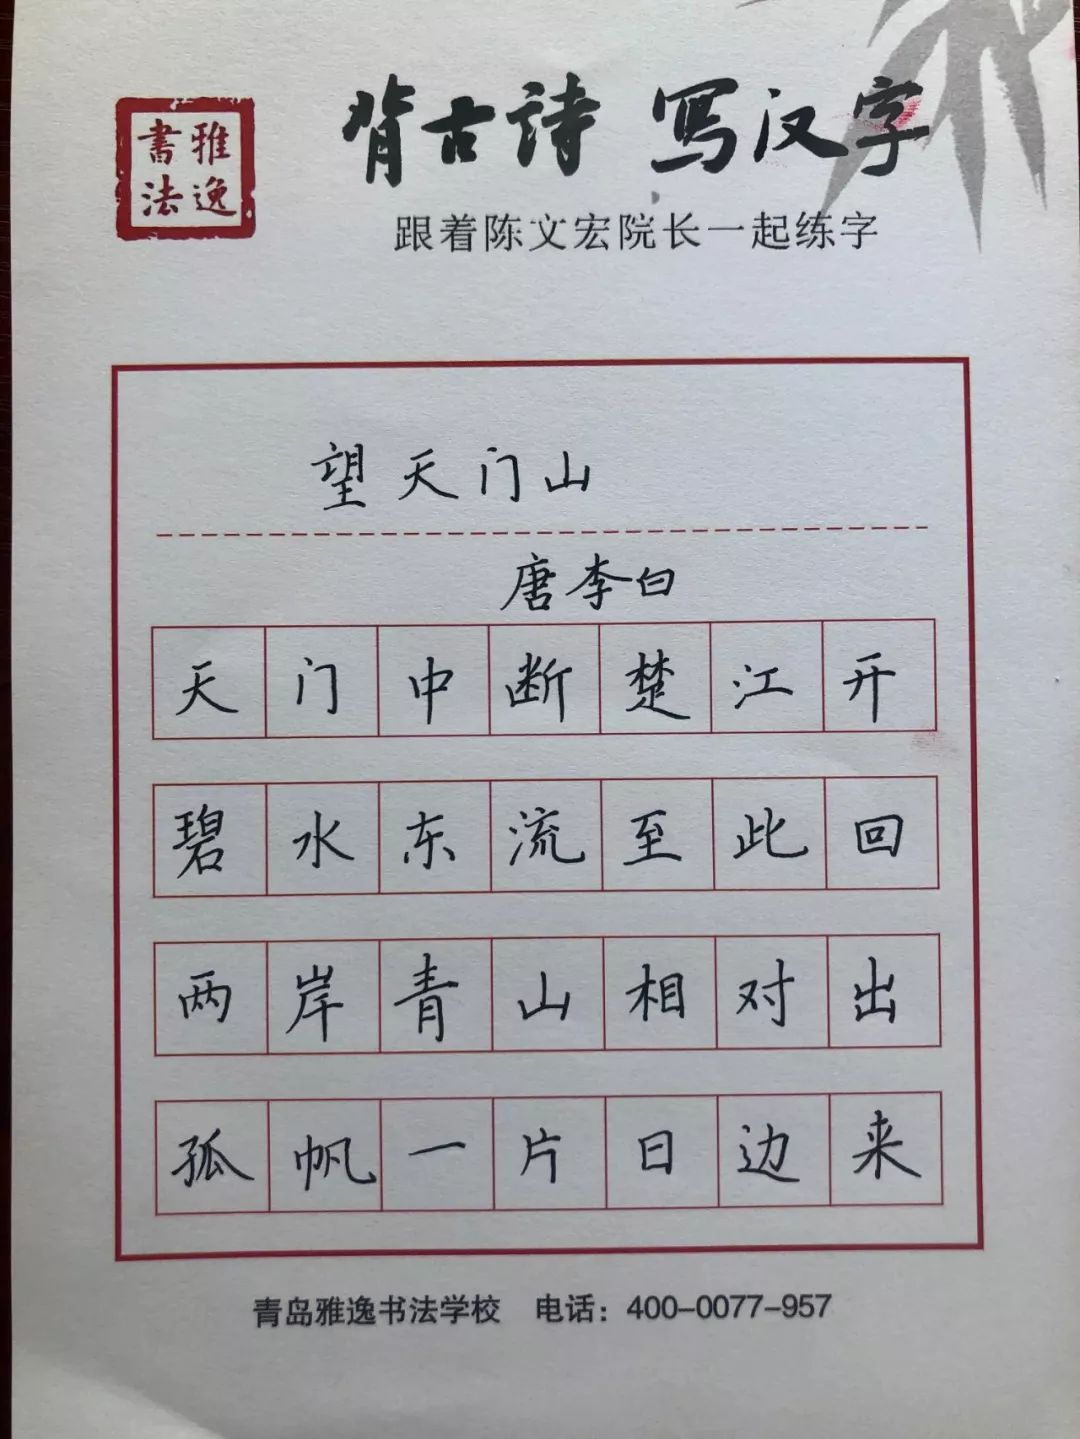 雅逸
書法
背古诗 写汉字
跟着陈文宏院长一起练字
望天门山
唐李白
天门中断楚江开
碧水东流至此回
两岸青山相对出
孤帆一片日边来
青岛雅逸书法学校 电话：400-0077-957